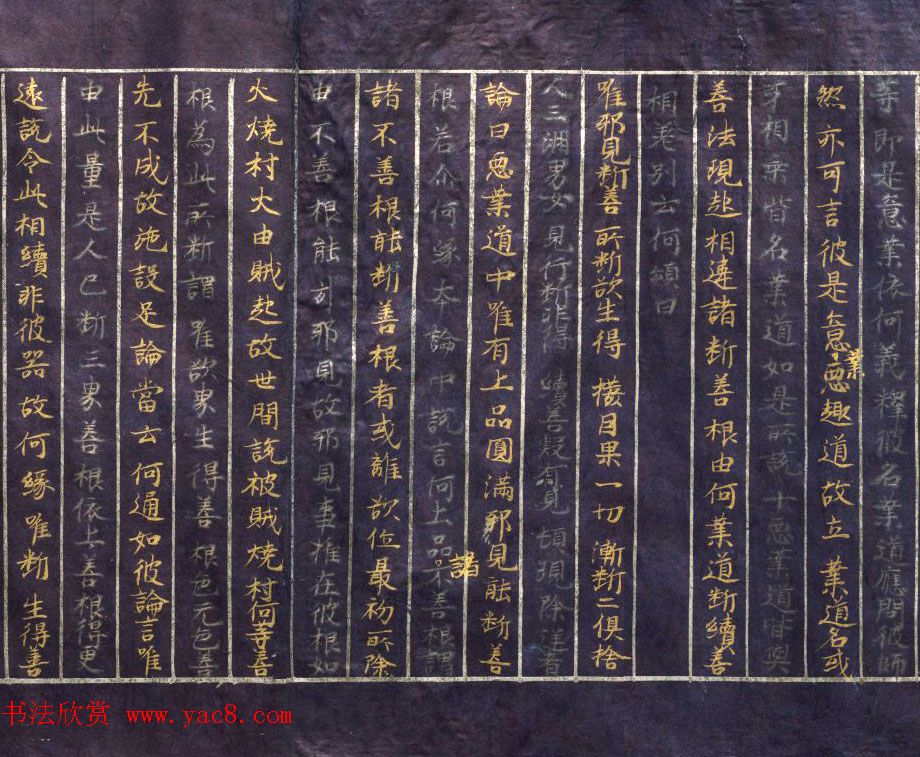 等即是意業依何義釋彼名業道應問彼師
然亦可言彼是意業惡趣道故立業道名或
互相乘皆名業道如是所說十惡業道皆與
善法現起相違諸斷善根由何業道斷續善
相差別云何頌曰
唯邪見斷善 所斷欲生得 撥因果一切 漸斷二俱捨
人三洲男女 見行斷非得 續善疑有見 頓現除逆者
論曰惡業道中唯有上品圓滿邪見能斷善
根若尒何緣本論中說言何上品諸不善根謂
諸不善根能斷善根者或離欲位最初所除
由不善根能引邪見故邪見事推在彼根如
火燒村火由賊起故世間說被賊燒村何等善
根為此所斷謂唯欲界生得善根色无色善
先不成故施設足論當云何通如彼論言唯
由此量是人已斷三界善根依上善根得更
遠說令此相續非彼器故何緣唯斷生得善
书法欣赏 www.yac8.com